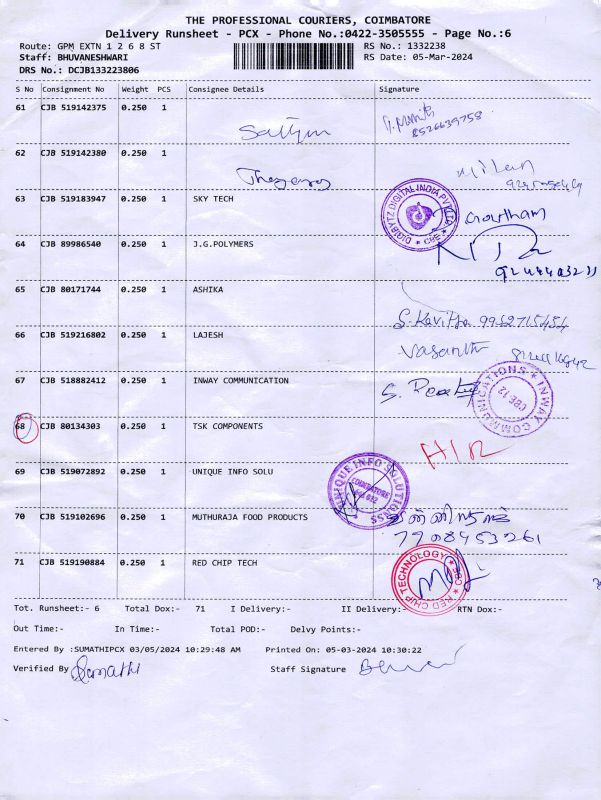 THE PROFESSIONAL COURIERS, COIMBATORE
Delivery Runsheet - PCX - Phone No.:0422-3505555 - Page No.:6
Route: GPM EXTN 1 2 6 8 ST RS No.: 1332238
Staff: BHUVANESHWARI RS Date: 05-Mar-2024
DRS No.: DCJB133223806
S No Consignment No Weight PCS Consignee Details Signature
61 CJB 519142375 0.250 1
8526639758
62 CJB 519142380 0.250 1
63 CJB 519183947 0.250 1 SKY TECH
DIGIBYTZ DIGITAL INDIA PVT LTD * CBE *
Gowtham
64 CJB 89986540 0.250 1 J.G.POLYMERS
65 CJB 80171744 0.250 1 ASHIKA
S. Kavitha 9952715454
66 CJB 519216802 0.250 1 LAJESH
Vasanth
67 CJB 518882412 0.250 1 INWAY COMMUNICATION
INWAY COMMUNICATIONS * CBE 12
68 CJB 80134303 0.250 1 TSK COMPONENTS
69 CJB 519072892 0.250 1 UNIQUE INFO SOLU
UNIQUE INFO SOLUTIONS COIMBATORE
70 CJB 519102696 0.250 1 MUTHURAJA FOOD PRODUCTS
7908453261
71 CJB 519190884 0.250 1 RED CHIP TECH
RED CHIP TECHNOLOGY * CBE *
Tot. Runsheet:- 6 Total Dox:- 71 I Delivery:- II Delivery:- RTN Dox:-
Out Time:- In Time:- Total POD:- Delvy Points:-
Entered By :SUMATHIPCX 03/05/2024 10:29:48 AM Printed On: 05-03-2024 10:30:22
Verified By Sumathi Staff Signature